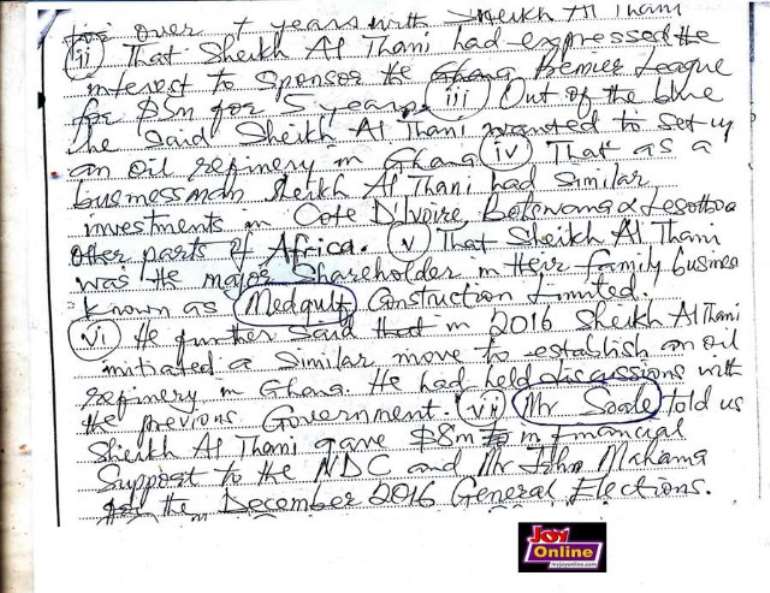 over + years with Sheikh Al Thani
(ii) That Sheikh Al Thani had expressed the
interest to sponsor the Ghana Premier League
for $5m for 5 years (iii) Out of the blue
he said Sheikh Al Thani wanted to set-up
an oil refinery in Ghana (iv) That as a
businessman Sheikh Al Thani had similar
investments in Cote D'Ivoire, Botswana & Lesotho &
other parts of Africa. (v) That Sheikh Al Thani
was the major Shareholder in their family busines
known as Medgulf Construction Limited.
(vi) He further said that in 2016 Sheikh Al Thani
initiated a similar move to establish an oil
refinery in Ghana. He had held discussions with
the previous Government. (vii) Mr Saale told us
Sheikh Al Thani gave $8m in financial
Support to the NDC and Mr John Mahama
for the December 2016 General Elections.
Joy
Online
myjoyonline.com